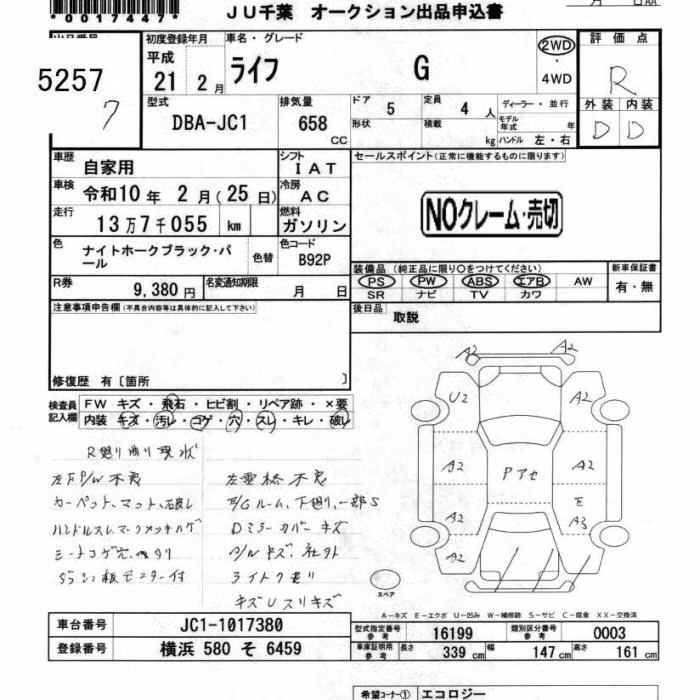 *0017447*
JU千葉 オークション出品申込書
5257
7
初度登録年月
平成
21 2 月
車名・グレード
ライフ G
2WD
・
4WD
評価点
R
外装 内装
D D
型式
DBA-JC1
排気量
658
CC
ドア 5
定員 4 人
形状
積載 kg
ディーラー・並行
モデル年式 年
ハンドル 左・右
車歴
自家用
シフト
IAT
車検
令和10年 2月(25日)
冷房
AC
走行
13万7千055 km
燃料
ガソリン
色
ナイトホークブラック・パール
色替
色コード
B92P
R券
9,380円
名変通知期限
月 日
セールスポイント(正常に機能するものに限ります)
NOクレーム・売切
装備品 (純正品に限り○をつけてください)
PS PW ABS エアB AW
SR ナビ TV カワ
新車保証書
有・無
後日品
取説
注意事項申告欄(不具合内容等は具体的に記入して下さい)
修復歴 有〔箇所 〕
検査員
記入欄
FW キズ・飛石・ヒビ割・リペア跡・×要
内装 キズ・汚レ・コゲ・穴・スレ・キレ・破レ
左下P/W不良
カーペット、マット、
シートコゲ穴
モニター付
Dミラーカバーキズ
A2 A2
U2 A2
A2 Pアセ A2
E
A2 A3
A2
スペア
A-キズ E-エクボ U-凹み W-補修跡 S-サビ C-腐食 XX-交換済
車台番号 JC1-1017380
登録番号 横浜 580 そ 6459
型式指定番号
参考
16199
類別区分番号
参考
0003
車庫証明用
参考
長さ 339 cm
幅 147 cm
高さ 161 cm
希望コーナー① エコロジー